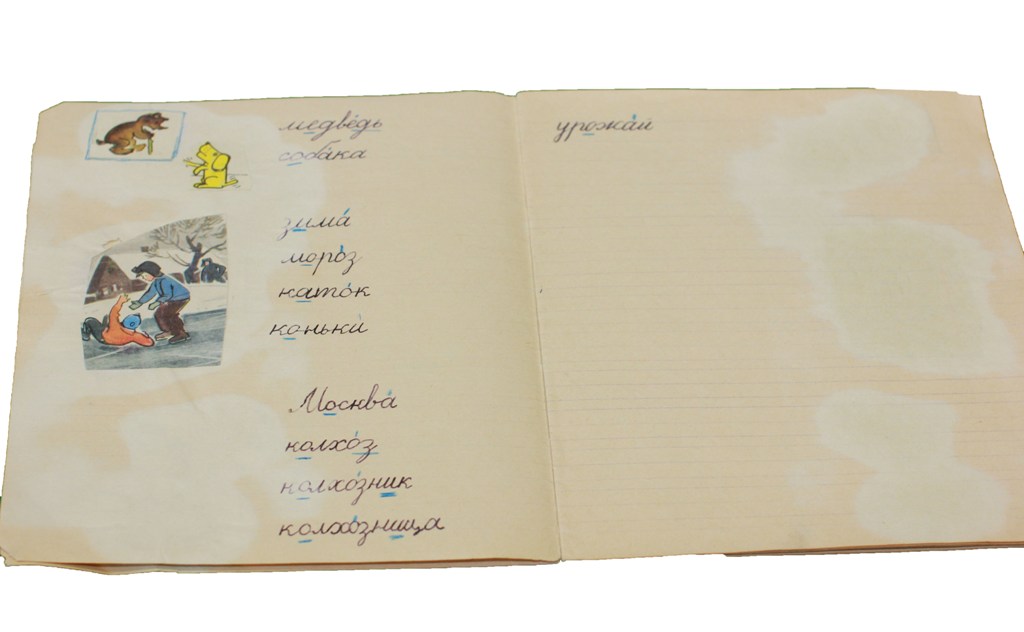 медве́дь
соба́ка
зима́
моро́з
като́к
коньки́
Москва́
колхо́з
колхо́зник
колхо́зница
урожа́й